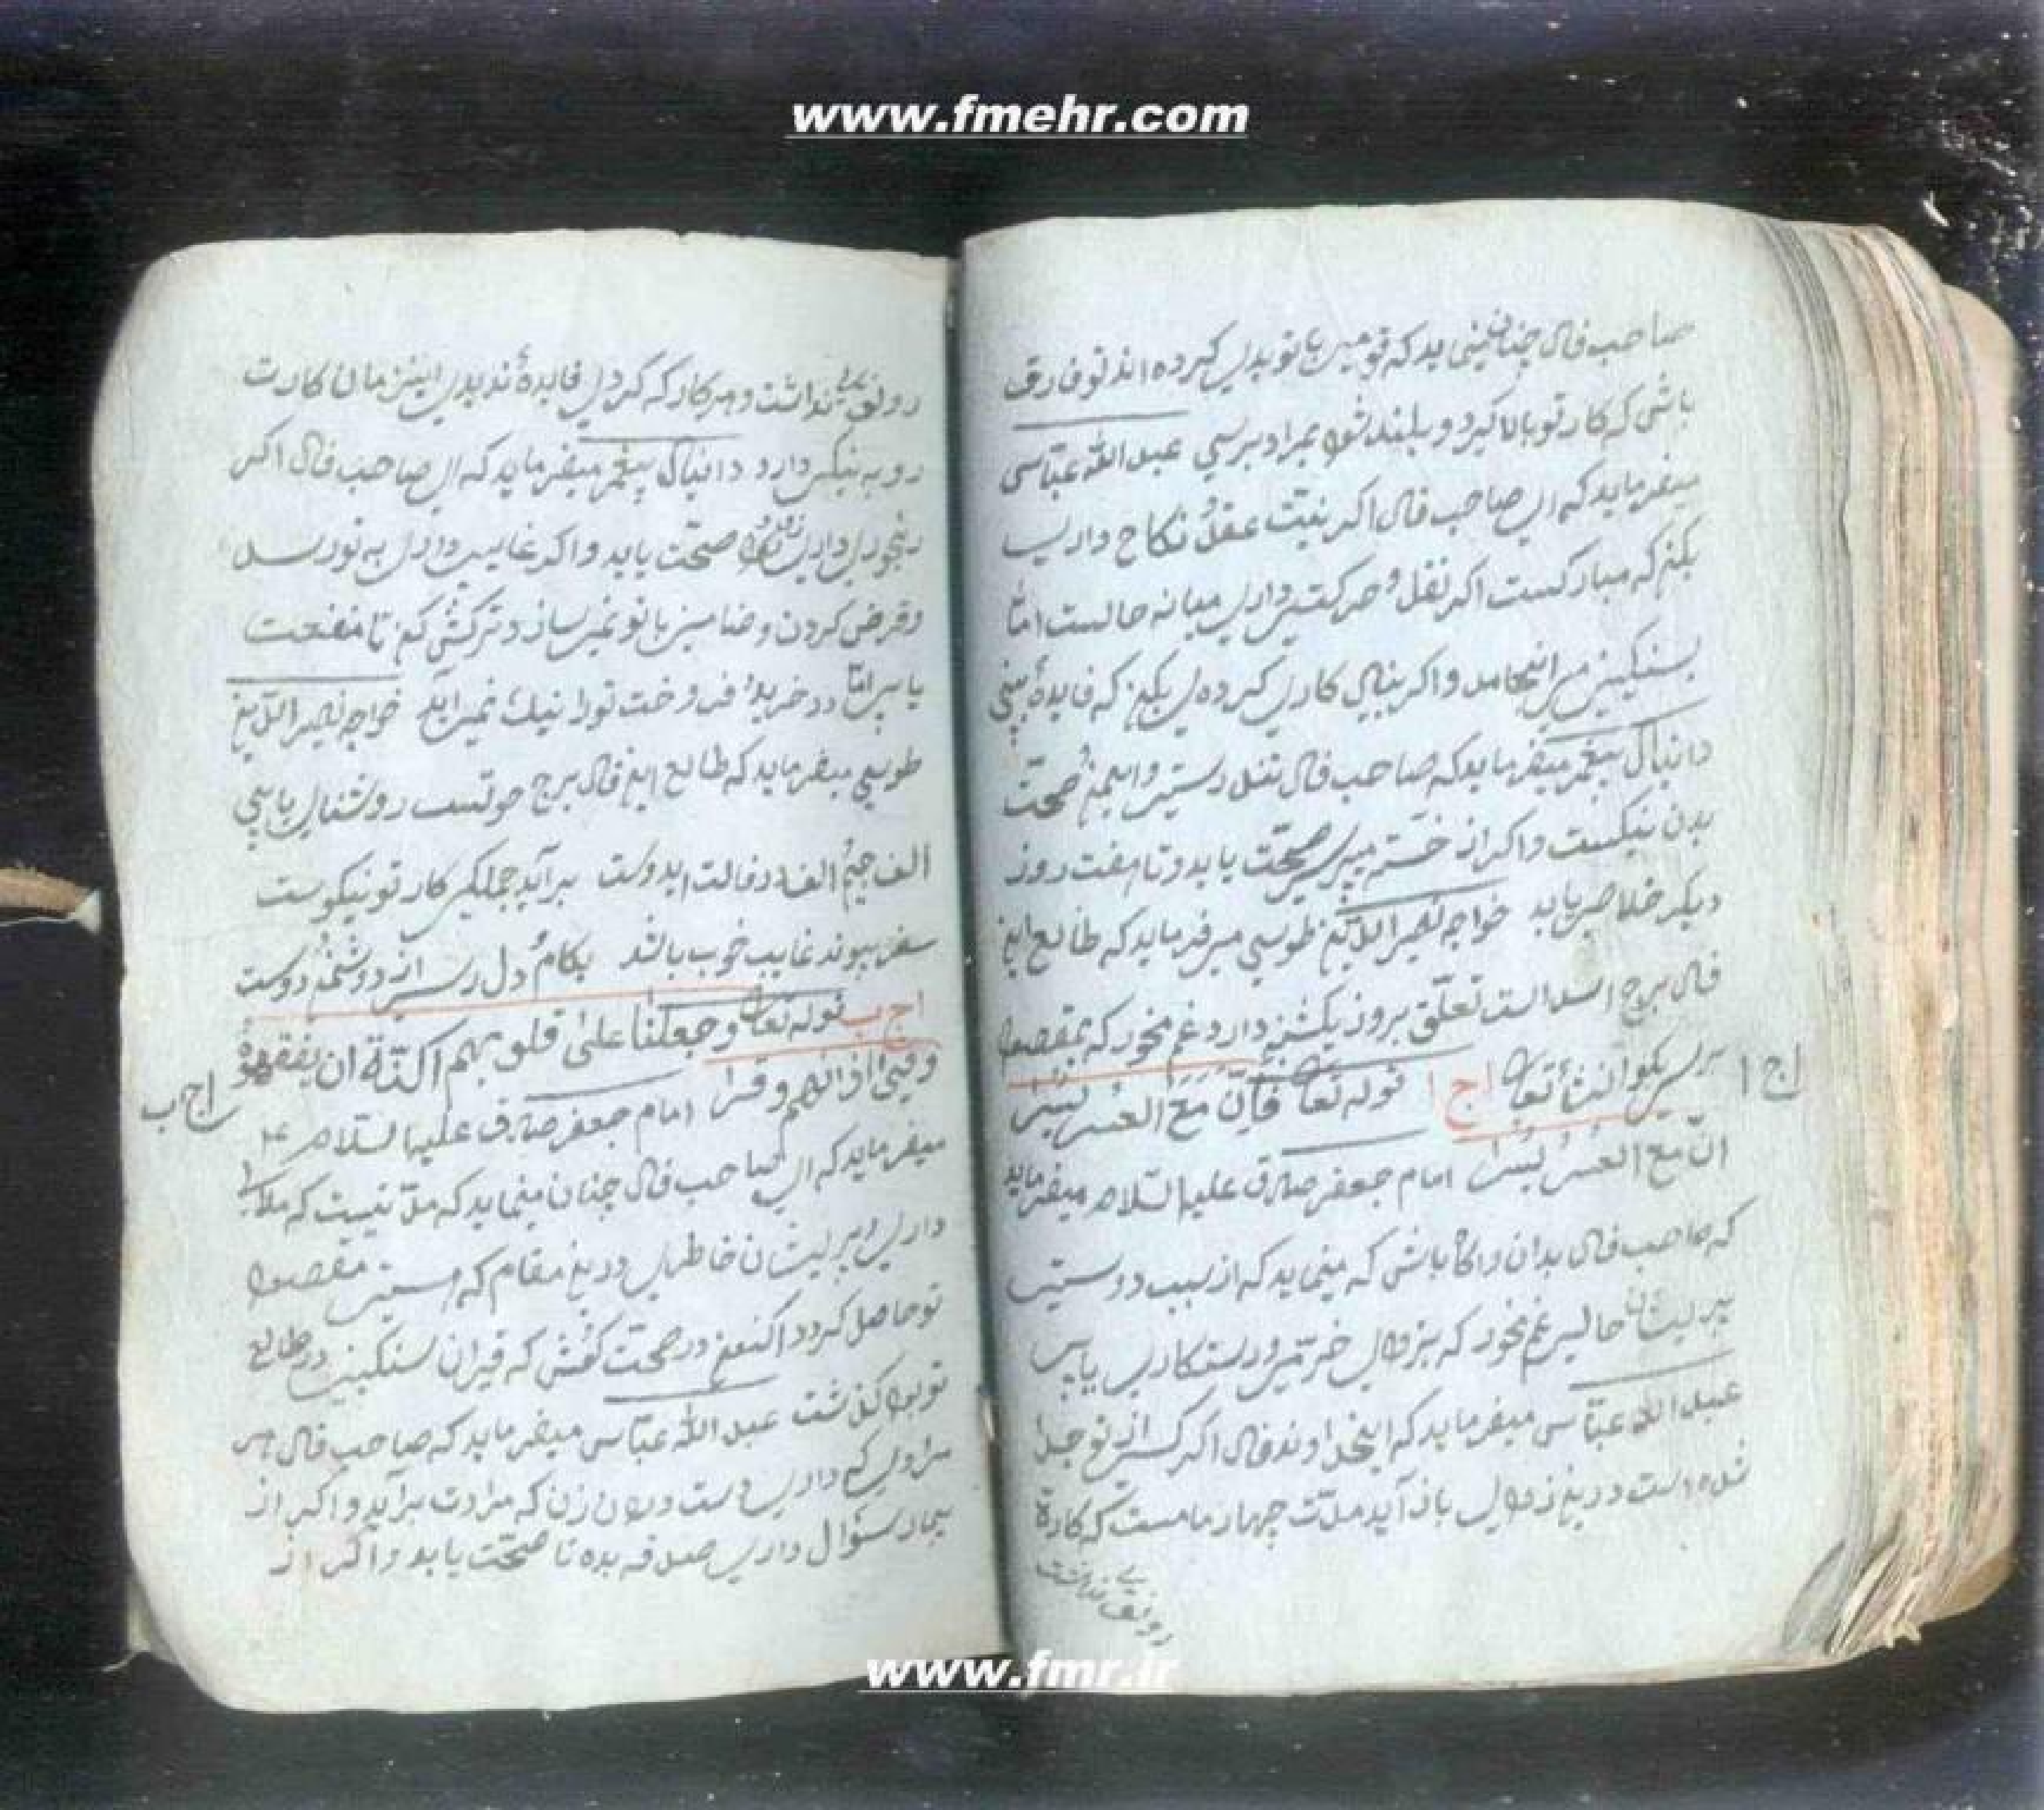 www.fmehr.com
صاحب فال چنان مینماید که قومی با تو بدی کرده اند تو فارق
باشی که کار تو بالا گیرد و بلند شود بمراد برسی عبد الله عباسی
میفرماید که ای صاحب فال اگر نیت عقد و نکاح داری
بکن که مبارکست اگر نقل و حرکتی داری میانه حالست اما
بسنگینی می انجامد و اگر بنای کاری کرده ای بکن که فایده بینی
دانیال پیغمبر میفرماید که صاحب فال تندرستی و ایمنی و صحت
بدن نیکست و اگر از خسته میپرسی صحت یابد و تا هفت روز
دیگر خلاصی یابد خواجه نصیر الدین طوسی میفرماید که طالع این
فال برج اسد است تعلق بروز یکشنبه دارد غم مخور که بمقصود
برسی انشأ تعا ا ج ا قوله تعا فَاِنَّ مَعَ العُسرِ یُسرا
ا ج ا
انّ مع العُسرِ یُسرا امام جعفر صادق علیه السلام میفرماید
که صاحب فال بدان و آگاه باش که مینماید که از سبب دوستی
پریشان حالی غم مخور که بزودی خرمی و رستگاری یابی
عبد الله عباسی میفرماید که ایخداوند فال اگر کسی از تو جدا
شده است درین زودی باز آید مدت چهار ماهست که کارت
رونقی نداشت
رونقی نداشت و هر کار که کردی فایده ندیدی این زمان کارت
رو به نیکی دارد دانیال پیغمبر میفرماید که ای صاحب فال اگر
رنجوری داری زود صحت یابد و اگر غایبی داری به تو رسد
و قرض کردن و ضامنی با تو نمیسازد ترکش کن تا منفعت
یابی اما در خرید و فروخت تو را نیک نمی آید خواجه نصیر الدین
طوسی میفرماید که طالع این فال برج حوتست روشنایی یابی
الف جیم الف در فالت ایدوست برآید جملگی کار تو نیکوست
سفر پیوند غایب خوب باشد بکام دل رسی از دشمن و دوست
ا ج ب قوله تعا و جعلنا علی قلوبهم اکنّة ان یفقهوهُ
ا ج ب
و فی اذانهم وقرا امام جعفر صادق علیه السلام
میفرماید که ای صاحب فال چنان مینماید که مدتیست که ملالی
داری و پریشان خاطری درین مقام که هستی مقصود
تو حاصل گردد اکنون در صحت کوش که قران سنگین در طالع
تو بود گذشت عبد الله عباسی میفرماید که صاحب فال هر
مرادی که داری دست در دامن زن که مرادت برآید و اگر از
بیمار سؤال داری صدقه بده تا صحت یابد و اگر از
www.fmr.ir